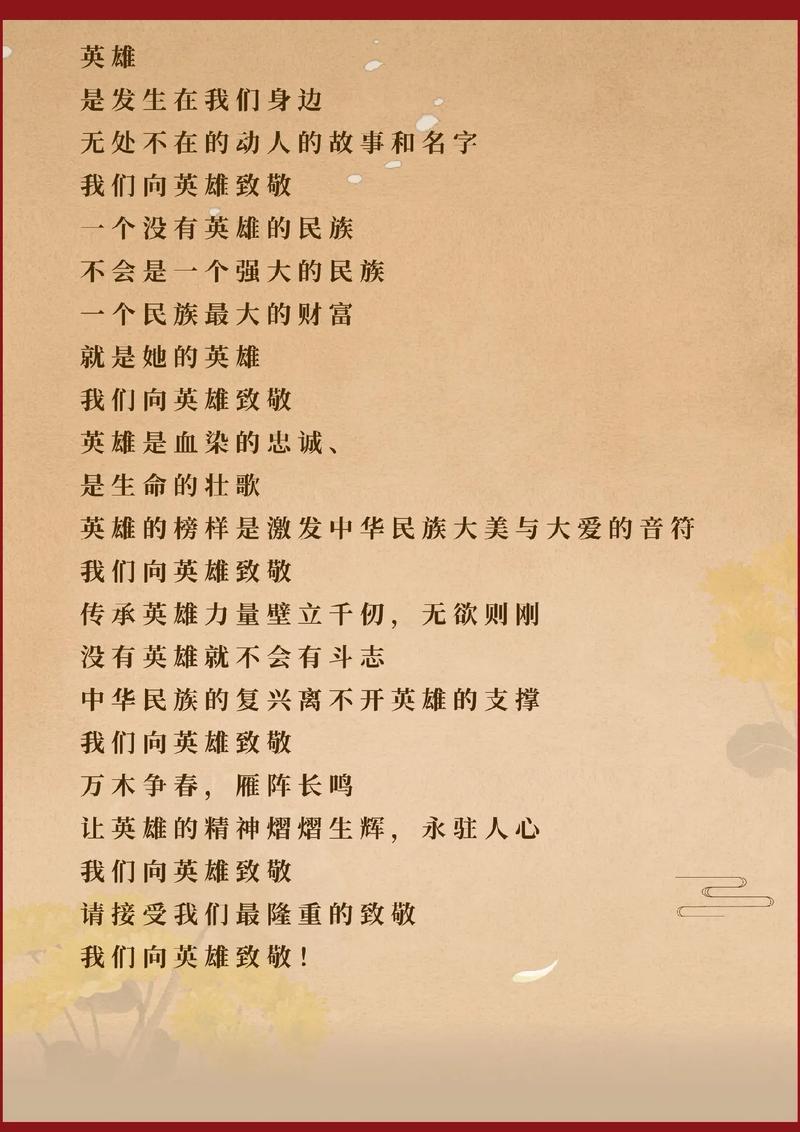 英雄
是发生在我们身边
无处不在的动人的故事和名字
我们向英雄致敬
一个没有英雄的民族
不会是一个强大的民族
一个民族最大的财富
就是她的英雄
我们向英雄致敬
英雄是血染的忠诚、
是生命的壮歌
英雄的榜样是激发中华民族大美与大爱的音符
我们向英雄致敬
传承英雄力量壁立千仞，无欲则刚
没有英雄就不会有斗志
中华民族的复兴离不开英雄的支撑
我们向英雄致敬
万木争春，雁阵长鸣
让英雄的精神熠熠生辉，永驻人心
我们向英雄致敬
请接受我们最隆重的致敬
我们向英雄致敬！